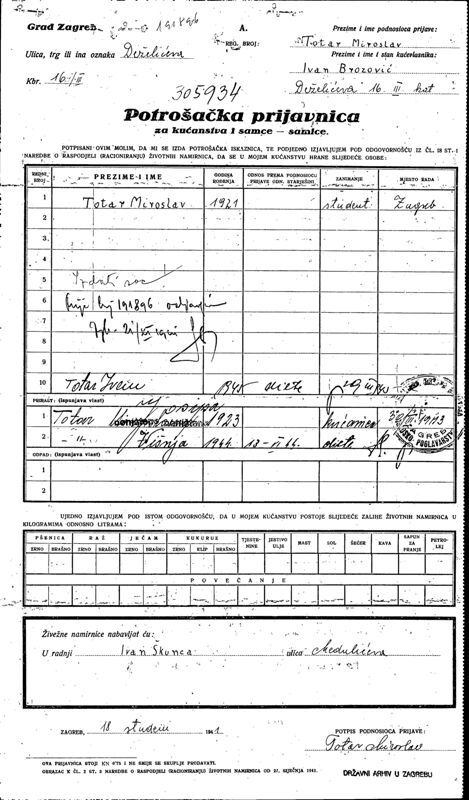 Grad Zagreb 191896
A.
REG. BROJ:
Prezime i ime podnosioca prijave:
Totar Miroslav
Ulica, trg ili ina oznaka Deželićeva
Prezime i ime i stan kućevlasnika:
Ivan Brozović
Kbr. 16/III
Deželićeva 16. III kat
305934
Potrošačka prijavnica
za kućanstva i samce — samice.
POTPISANI OVIM MOLIM, DA MI SE IZDA POTROŠAČKA ISKAZNICA, TE PODJEDNO IZJAVLJUJEM POD ODGOVORNOŠĆU IZ ČL. 18 ST. 1
NAREDBE O RASPODJELI (RACIONIRANJU) ŽIVOTNIH NAMIRNICA, DA SE U MOJEM KUĆANSTVU HRANE SLIJEDEĆE OSOBE:
REDNI BROJ: PREZIME I IME GODINA RODJENJA ODNOS PREMA PODNOSIOCU PRIJAVE ODN. STARJEŠINI ZANIMANJE MJESTO RADA
1 Totar Miroslav 1921 student Zagreb
2
3
4
5
6 191896
7
8
9
10 Totar 1945 dijete
PRIRAST: (ispunjava vlast)
1 Totar Josipa 1923 kućanica
2 -"- Višnja 1944 dijete
ZAGREB
ODPAD: (ispunjava vlast)
1
2
UJEDNO IZJAVLJUJEM POD ISTOM ODGOVORNOŠĆU, DA U MOJEM KUĆANSTVU POSTOJE SLIJEDEĆE ZALIHE ŽIVOTNIH NAMIRNICA U
KILOGRAMIMA ODNOSNO LITRAMA:
PŠENICA RAŽ JEČAM KUKURUZ TJESTENINE JESTIVO ULJE MAST SOL ŠEĆER KAVA SAPUN ZA PRANJE PETROLEJ
ZRNO BRAŠNO ZRNO BRAŠNO ZRNO BRAŠNO ZRNO KLIP BRAŠNO
POVEĆANJE
Živežne namirnice nabavljat ću:
U radnji Ivan Škunca ulica Medulićeva
ZAGREB, 18 studeni 1941
POTPIS PODNOSIOCA PRIJAVE:
Totar Miroslav
OVA PRIJAVNICA STOJI KN 0'75 I NE SMIJE SE SKUPLJE PRODAVATI.
OBRAZAC K ČL. 2 ST. 2 NAREDBE O RASPODJELI (RACIONIRANJU) ŽIVOTNIH NAMIRNICA OD 27. SIJEČNJA 1941.
DRŽAVNI ARHIV U ZAGREBU